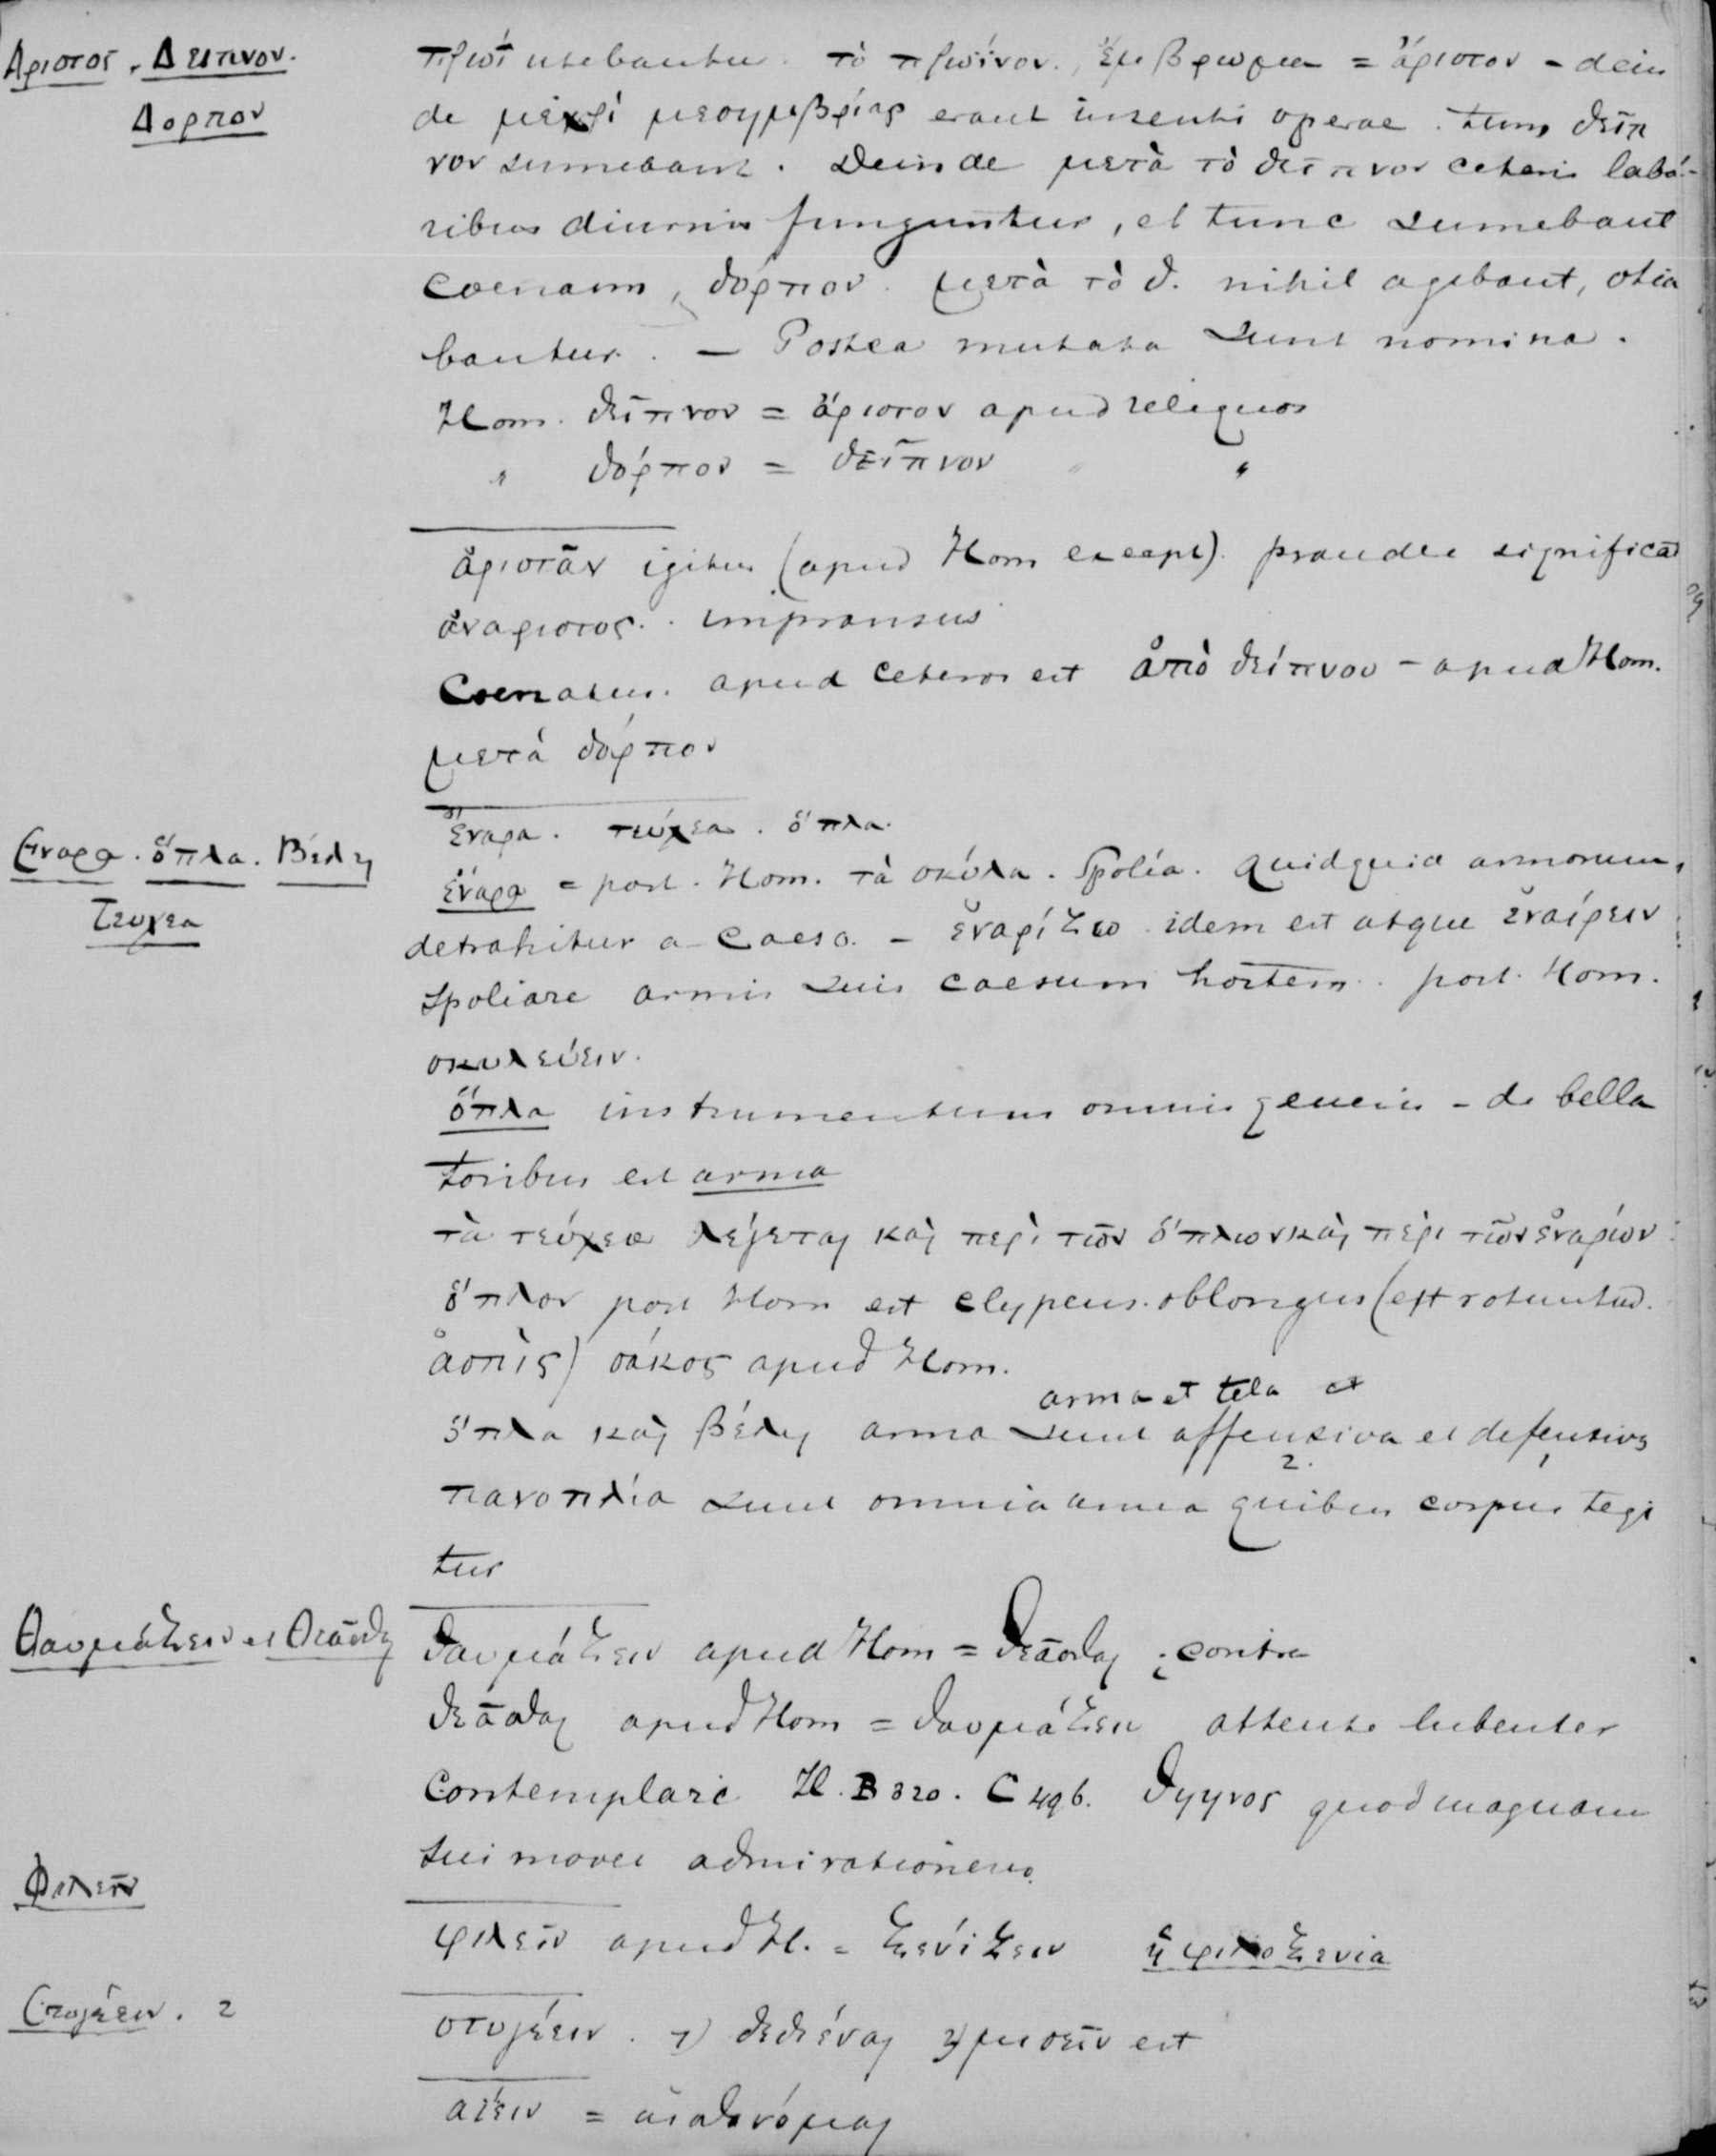 Αριστος . Δειπνον.
Δορπον
πρωῒ utebantur. τὸ πρωϊνον. ἔμβρωμα = ἄριστον - dein
de μέχρι μεσημβρίας erant intenti operae . tum δεῖπ
νον sumebant . Deinde μετὰ τὸ δεῖπνον ceteris labo-
ribus diurnis funguntur, et tunc sumebant
coenam, δόρπον. μετὰ τὸ δ. nihil agebant, otia
bantur. — Postea mutata sunt nomina.
Hom. δεῖπνον = ἄριστον apud reliquos
" δόρπον = δεῖπνον " "
ἀριστᾶν igitur (apud Hom except). prandere significat
ἀναριστος . impransus
Coenatus. apud ceteros est ἀπὸ δείπνου - apud Hom.
μετὰ δόρπον
Εναρα . ὅπλα . Βέλη
Τευχεα
ἔναρα . τεύχεα . ὅπλα.
ἔναρα = post . Hom. τὰ σκύλα . Spolia . quidquid armorum,
detrahitur a caeso. - ἐναρίζω idem est atque ἐναίρειν
spoliare armis suis caesum hostem . post. Hom.
σκυλεύειν.
ὅπλα instrumentum omnis generis - de bella
toribus est arma
τὰ τεύχεα λέγεται καὶ περὶ τῶν ὅπλων καὶ πὲρι τῶν ἐναρίων
ὅπλον post Hom est clypeus oblongus (est rotuntus.
ἀσπὶς) σάκος apud Hom.
arma et tela et
ὅπλα καὶ βέλη arma sunt offensiva et defensiva
2. 1
πανοπλία sunt omnia arma quibus corpus tegi
tur
Θαυμάζειν et Θεᾶσθαι
θαυμάζειν apud Hom = θεᾶσθαι ; contra
θεᾶσθαι apud Hom = θαυμάζειν attente lubenter
Contemplare. H. B 320. C 496. θηηνος quod magnam
sui movet admirationem.
Φιλεῖν
φιλεῖν apud H. = ξενίζειν ἡ φιλοξενία
Στυγέειν . 2
στυγέειν . 1) δεδιέναι 2) μισεῖν est
αΐειν = αἰσθανόμαι